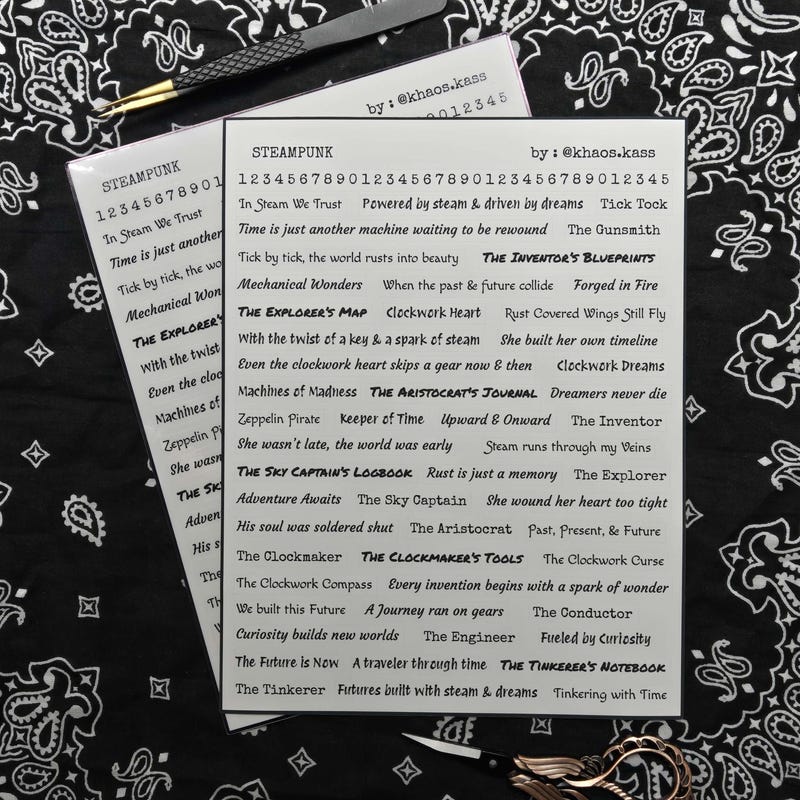 by : @khaos.kass
012345
STEAMPUNK
12345678901
In Steam We Trust
Time is just another
Tick by tick, the wo
Mechanical Won
The Explorer's
With the twist
Even the cloc
Machines of
Zeppelin Pi
She wasn
The Sk
Adven
His s
The
STEAMPUNK by : @khaos.kass
12345678901234567890123456789012345
In Steam We Trust Powered by steam & driven by dreams Tick Tock
Time is just another machine waiting to be rewound The Gunsmith
Tick by tick, the world rusts into beauty The Inventor's Blueprints
Mechanical Wonders When the past & future collide Forged in Fire
The Explorer's Map Clockwork Heart Rust Covered Wings Still Fly
With the twist of a key & a spark of steam She built her own timeline
Even the clockwork heart skips a gear now & then Clockwork Dreams
Machines of Madness The Aristocrat's Journal Dreamers never die
Zeppelin Pirate Keeper of Time Upward & Onward The Inventor
She wasn't late, the world was early Steam runs through my Veins
The Sky Captain's Logbook Rust is just a memory The Explorer
Adventure Awaits The Sky Captain She wound her heart too tight
His soul was soldered shut The Aristocrat Past, Present, & Future
The Clockmaker The Clockmaker's Tools The Clockwork Curse
The Clockwork Compass Every invention begins with a spark of wonder
We built this Future A Journey ran on gears The Conductor
Curiosity builds new worlds The Engineer Fueled by Curiosity
The Future is Now A traveler through time The Tinkerer's Notebook
The Tinkerer Futures built with steam & dreams Tinkering with Time